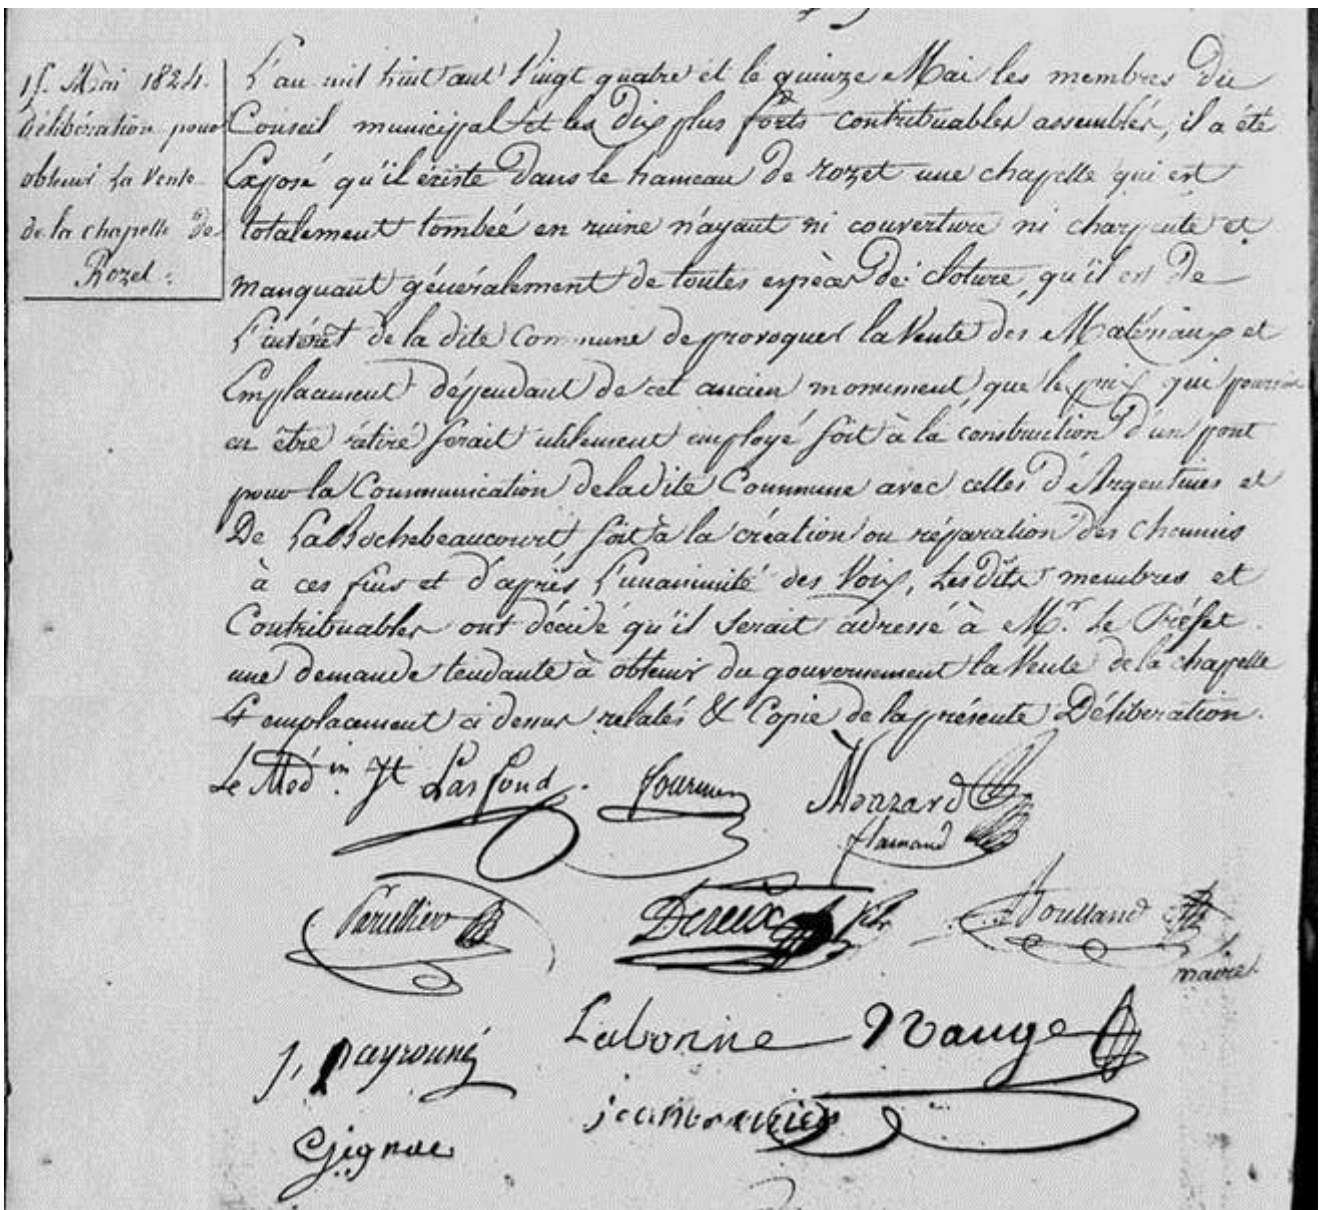 15 Mai 1824.
Délibération pour
obtenir la Vente
de la chapelle de
Rozet.
L'an mil huit cent Vingt quatre et le quinze Mai les membres du
Conseil municipal et les Dix plus forts contribuables assemblés, il a été
Exposé qu'il éxiste Dans le hameau De rozet une chapelle qui est
totalement tombée en ruine n'ayant ni couverture ni charpente et
manquant généralement de toutes espèces De cloture, qu'il est De
L'intérêt de la dite Commune de provoquer la Vente des Matériaux et
Emplacement dépendant de cet ancien monument, que le prix qui pourrait
en être rétiré serait utilement employé soit à la construction d'un pont
pour la Communication de la dite Commune avec celles d'Argentines et
De La Rochebeaucourt, soit à la création ou réparation des chemins
à ces fins et d'après L'unanimité des Voix, Les Dits membres et
Contribuables ont décidé qu'il serait adressé à Mr. Le Préfet
une demande tendante à obtenir du gouvernement la Vente de la chapelle
& emplacement ci dessus relatés & Copie de la présente Délibération.
Le Méd.in Lasfond
Monzard
flamand
Dereix
maire
J, Nauge
Labonne
Gignac